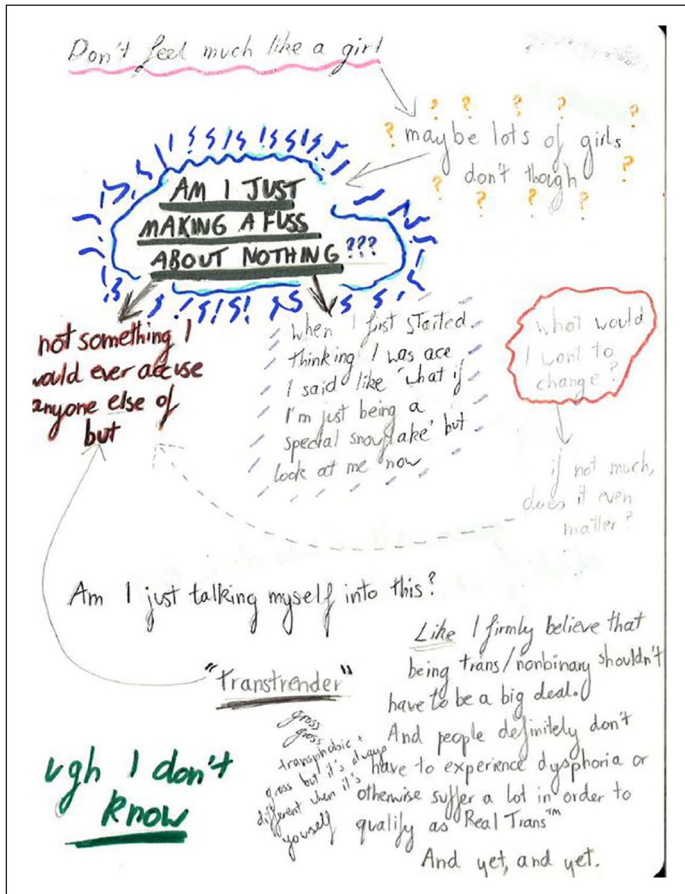 Don't feel much like a girl
maybe lots of girls
don't though
AM I JUST
MAKING A FUSS
ABOUT NOTHING ???
not something I
would ever accuse
anyone else of
but
When I first started
thinking I was ace
I said like 'what if
I'm just being a
special snowflake' but
look at me now
what would
I want to
change?
if not much,
does it even
matter?
Am I just talking myself into this?
"Transtrender"
gross
gross
transphobic +
gross but it's always
different when it's
yourself
Like I firmly believe that
being trans/nonbinary shouldn't
have to be a big deal.
And people definitely don't
have to experience dysphoria or
otherwise suffer a lot in order to
qualify as Real Trans™
And yet, and yet.
ugh I don't
know